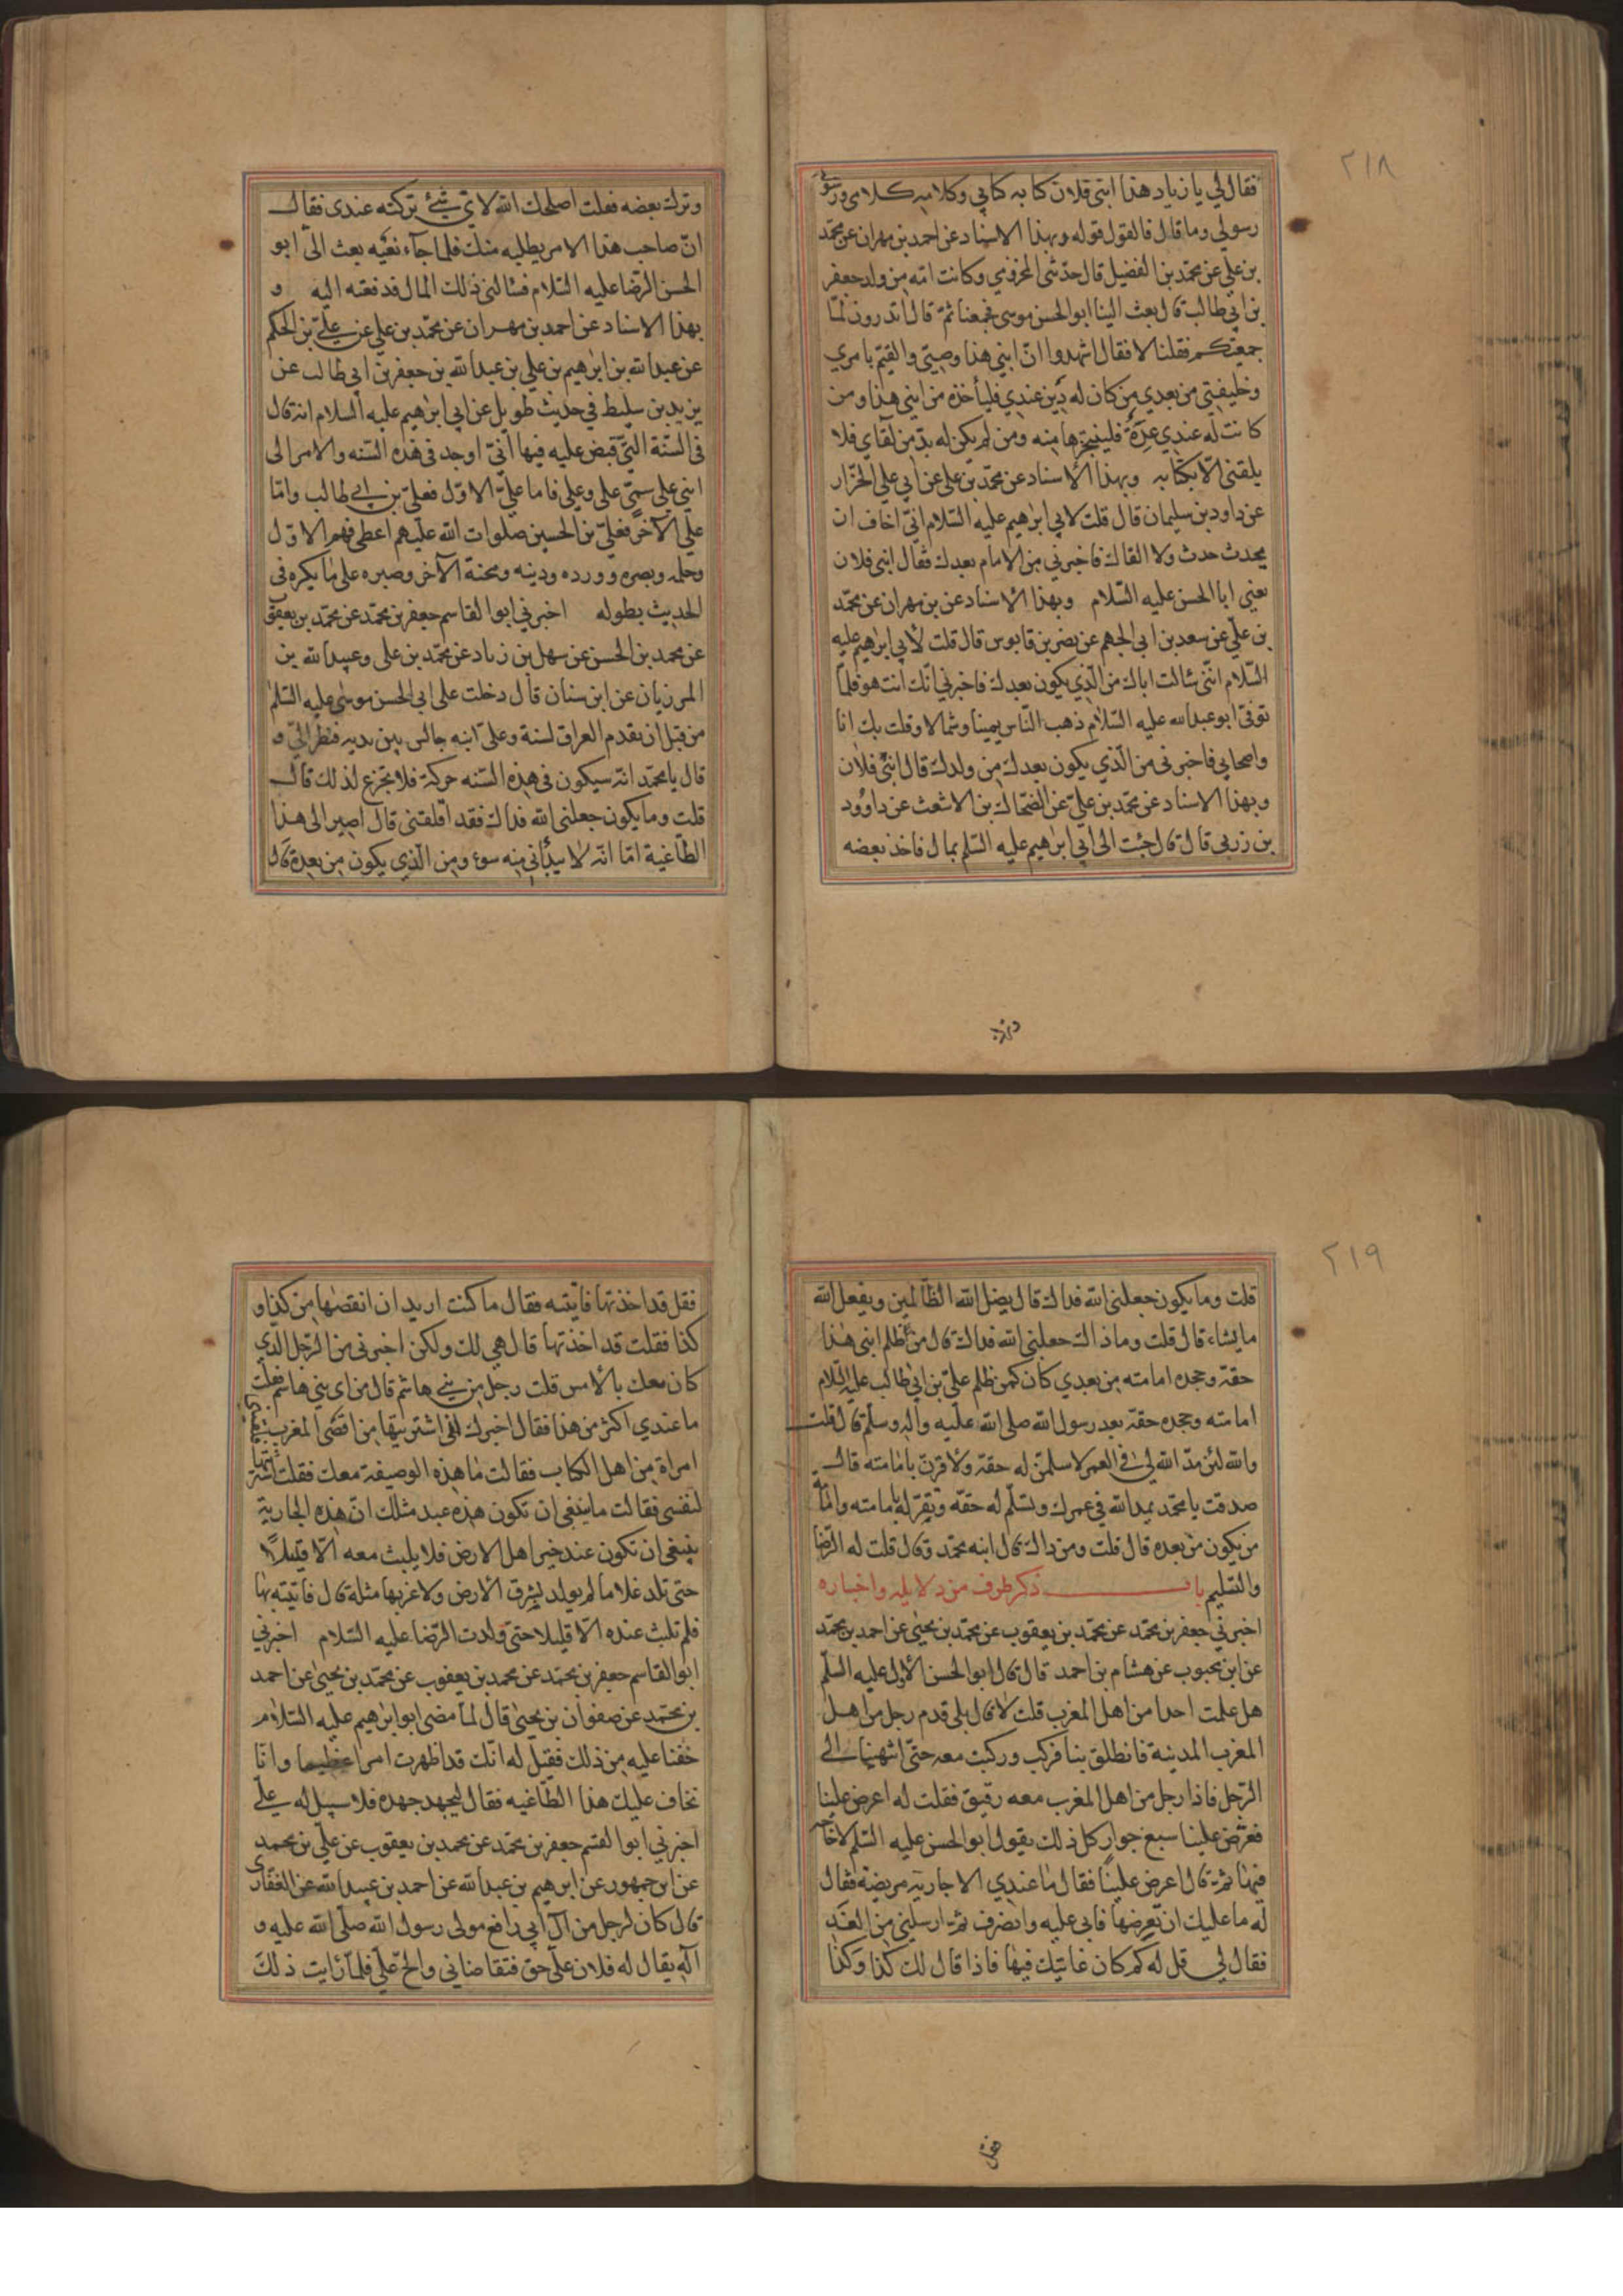 ٢١٨
فقال لي يا زياد هذا ابني فلان كتابه كتابي وكلامه كلامي ورسوله
رسولي وما قال فالقول قوله وبهذا الاسناد عن احمد بن مهران عن محمّد
بن علي عن محمّد بن الفضيل قال حدّثني المخزومي وكانت امّه من ولد جعفر
بن ابي طالب قال بعث الينا ابو الحسن موسى فجمعنا ثمّ قال اتدرون لمّا
جمعتكم فقلنا لا فقال اشهدوا انّ ابني هذا وصيّتي والقيّم بامري
وخليفتي من بعدي من كان له دين عندي فليأخذه من ابني هذا ومن
كانت له عندي عدة فلينجزها منه ومن لم يكن له بدّ من لقآي فلا
يلقني الّا بكتابه وبهذا الاسناد عن محمّد بن علي عن ابي علي الخزّار
عن داود بن سليمان قال قلت لابي ابرهيم عليه السّلام انّي اخاف ان
يحدث حدث ولا القاك فاخبرني من الامام بعدك فقال ابني فلان
يعني ابا الحسن عليه السّلام وبهذا الاسناد عن بن مهران عن محمّد
بن علّي عن سعد بن ابي الجهم عن نصر بن قابوس قال قلت لأبي ابرهيم عليه
السّلام انّني سئالت اباك من الّذي يكون بعدك فاخبرني انّك انت هو فلمّا
توفّى ابو عبد الله عليه السّلام ذهب النّاس يمينا وشمالا وقلت بك انا
واصحابي فاخبرني من الّذي يكون بعدك من ولدك قال ابني فلان
وبهذا الاسناد عن محمّد بن عليّ عن الضحّاك بن الاشعث عن داوُود
بن زربي قال قال جئت الى ابي ابرهيم عليه السّلم بمال فاخذ بعضه
وترك
وترك بعضه فقلت اصلحك الله لايّ شيء تركته عندي فقال
انّ صاحب هذا الامر يطلبه منك فلما جآء نعيه بعث الىّ ابو
الحسن الرّضا عليه السّلام فسئالني ذلك المال فدفعته اليه و
بهذا الاسناد عن احمد بن مهران عن محمّد بن علي عن عليّ بن الحكم
عن عبد الله بن ابرهيم بن علي بن عبد الله بن جعفر بن ابي طالب عن
يزيد بن سليط في حديث طويل عن ابي ابرهيم عليه السلام انه قال
في السّنة الّتي قبض عليه فيها انّي اوجد في هذه السّنه والامر الى
ابني علي سميّ علي وعلي فاما عليّ الاوّل فعليّ بن ابي طالب وامّا
علي الآخر فعليّ بن الحسين صلوات الله عليهم اعطي فهم الاوّل
وحلمه وبصره وورده ودينه ومحنة الآخر وصبره على ما يكره في
الحديث بطوله اخبرني ابو القاسم جعفر بن محمّد عن محمّد بن يعقوب
عن محمد بن الحسن عن سهل بن زياد عن محمّد بن علي وعبيد الله بن
المرزبان عن ابن سنان قال دخلت على ابي الحسن موسى عليه السّلم
من قبل ان يقدم العراق لسنة وعلىّ ابنه جالس بين يديه فنظر اليّ و
قال يا محمّد انّه سيكون في هذه السّنه حركة فلا تجزع لذلك قال
قلت وما يكون جعلني الله فداك فقد اقلقتني قال اصير الى هذا
الطّاغية امّا انّه لا يبدأني منه سوء ومن الّذي يكون من بعده قال
٢١٩
قلت وما يكون جعلني الله فداك قال يضلّ الله الظّالمين ويفعل الله
ما يشاء قال قلت وما ذاك جعلني الله فداك قال من ظلم ابني هذا
حقّه وجحده امامته من بعدي كان كمن ظلم عليّ بن ابي طالب عليه السّلام
امامته وجحده حقّه بعد رسول الله صلى الله عليه وآله وسلّم قال قلت
والله لئن مدّ الله لي في العمر لاسلمنّ له حقّه ولاقرّنّ بامامته قال
صدقت يا محمّد يمدّ الله في عمرك وتسلّم له حقّه وتقرّ له بامامته وامامة
من يكون من بعده قال قلت ومن ذاك قال ابنه محمّد قال قلت له الرّضا
والتّسليم باب ذكر طرف من دلايله واخباره
اخبرني جعفر بن محمّد عن محمّد بن يعقوب عن محمّد بن يحيى عن احمد بن محمّد
عن ابن محبوب عن هشام بن احمد قال قال ابو الحسن الاول عليه السلّم
هل علمت احدا من اهل المغرب قلت لا قال بلى قدم رجل من اهل
المغرب المدينة فانطلق بنا فركب وركبت معه حتّى انتهينا الى
الرّجل فاذا رجل من اهل المغرب معه رقيق فقلت له اعرض علينا
فعرض علينا سبع جوار كل ذلك يقول ابو الحسن عليه السّلم لا حاجة
فيها ثمّ قال اعرض علينا فقال ما عندي الا جارية مريضة فقال
له ما عليك ان تعرضها فابى عليه وانصرف ثمّ ارسلني من الغد
فقال لي قل له كم كان غايتك فيها فاذا قال لك كذا وكذا
فقل
فقل قد اخذتها فاتيته فقال ما كنت اريد ان انقصها من كذا و
كذا فقلت قد اخذتها قال هي لك ولكن اخبرني من الرّجل الذي
كان معك بالأمس قلت رجل من بني هاشم قال من اي بني هاشم فقلت
ما عندي اكثر من هذا فقال اخبرك انّي اشتريتها من اقصى المغرب فلقيتني
امراة من اهل الكتاب فقالت ما هذه الوصيفة معك فقلت اشتريتها
لنفسي فقالت ما ينبغي ان تكون هذه عند مثلك انّ هذه الجارية
ينبغي ان تكون عند خير اهل الارض فلا يلبث معه الّا قليلًا
حتى تلد غلاما لم يولد بشرق الأرض ولا غربها مثله قال فاتيته بها
فلم تلبث عنده الّا قليلا حتى ولدت الرّضا عليه السّلام اخبرني
ابو القاسم جعفر بن محمّد عن محمد بن يعقوب عن محمّد بن يحيىٰ عن احمد
بن محمّد عن صفوان بن يحيىٰ قال لمّا مضى ابو ابرهيم عليه السّلام
خفنا عليه من ذلك فقيل له انّك قد اظهرت امرا عظيما وانّا
نخاف عليك هذا الطّاغيه فقال ليجهد جهده فلا سبيل له عليّ
اخبرني ابو القسم جعفر بن محمّد عن محمد بن يعقوب عن علّي بن محمد
عن ابن جمهور عن ابرهيم بن عبد الله عن احمد بن عبيد الله عن الغفّاري
قال كان لرجل من آل ابي رافع مولى رسول الله صلّى الله عليه و
آله يقال له فلان علّي حق فتقاضاني والحّ علّي فلمّا رايت ذلك